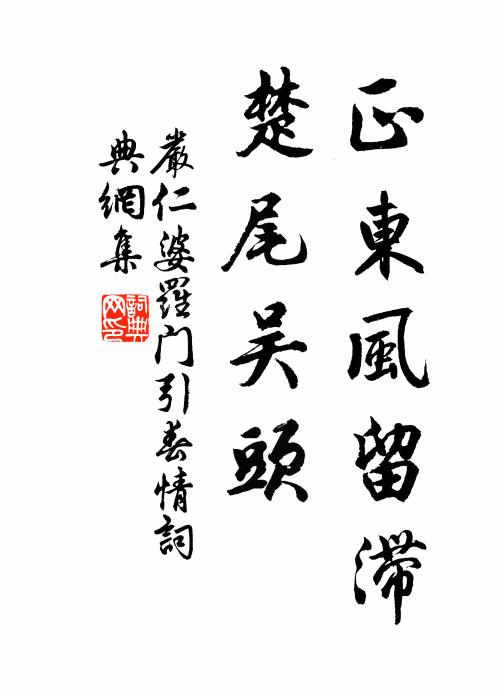 正東風留滯
楚尾吳頭
嚴仁婆羅門引春情詞
典網集
詞典網印